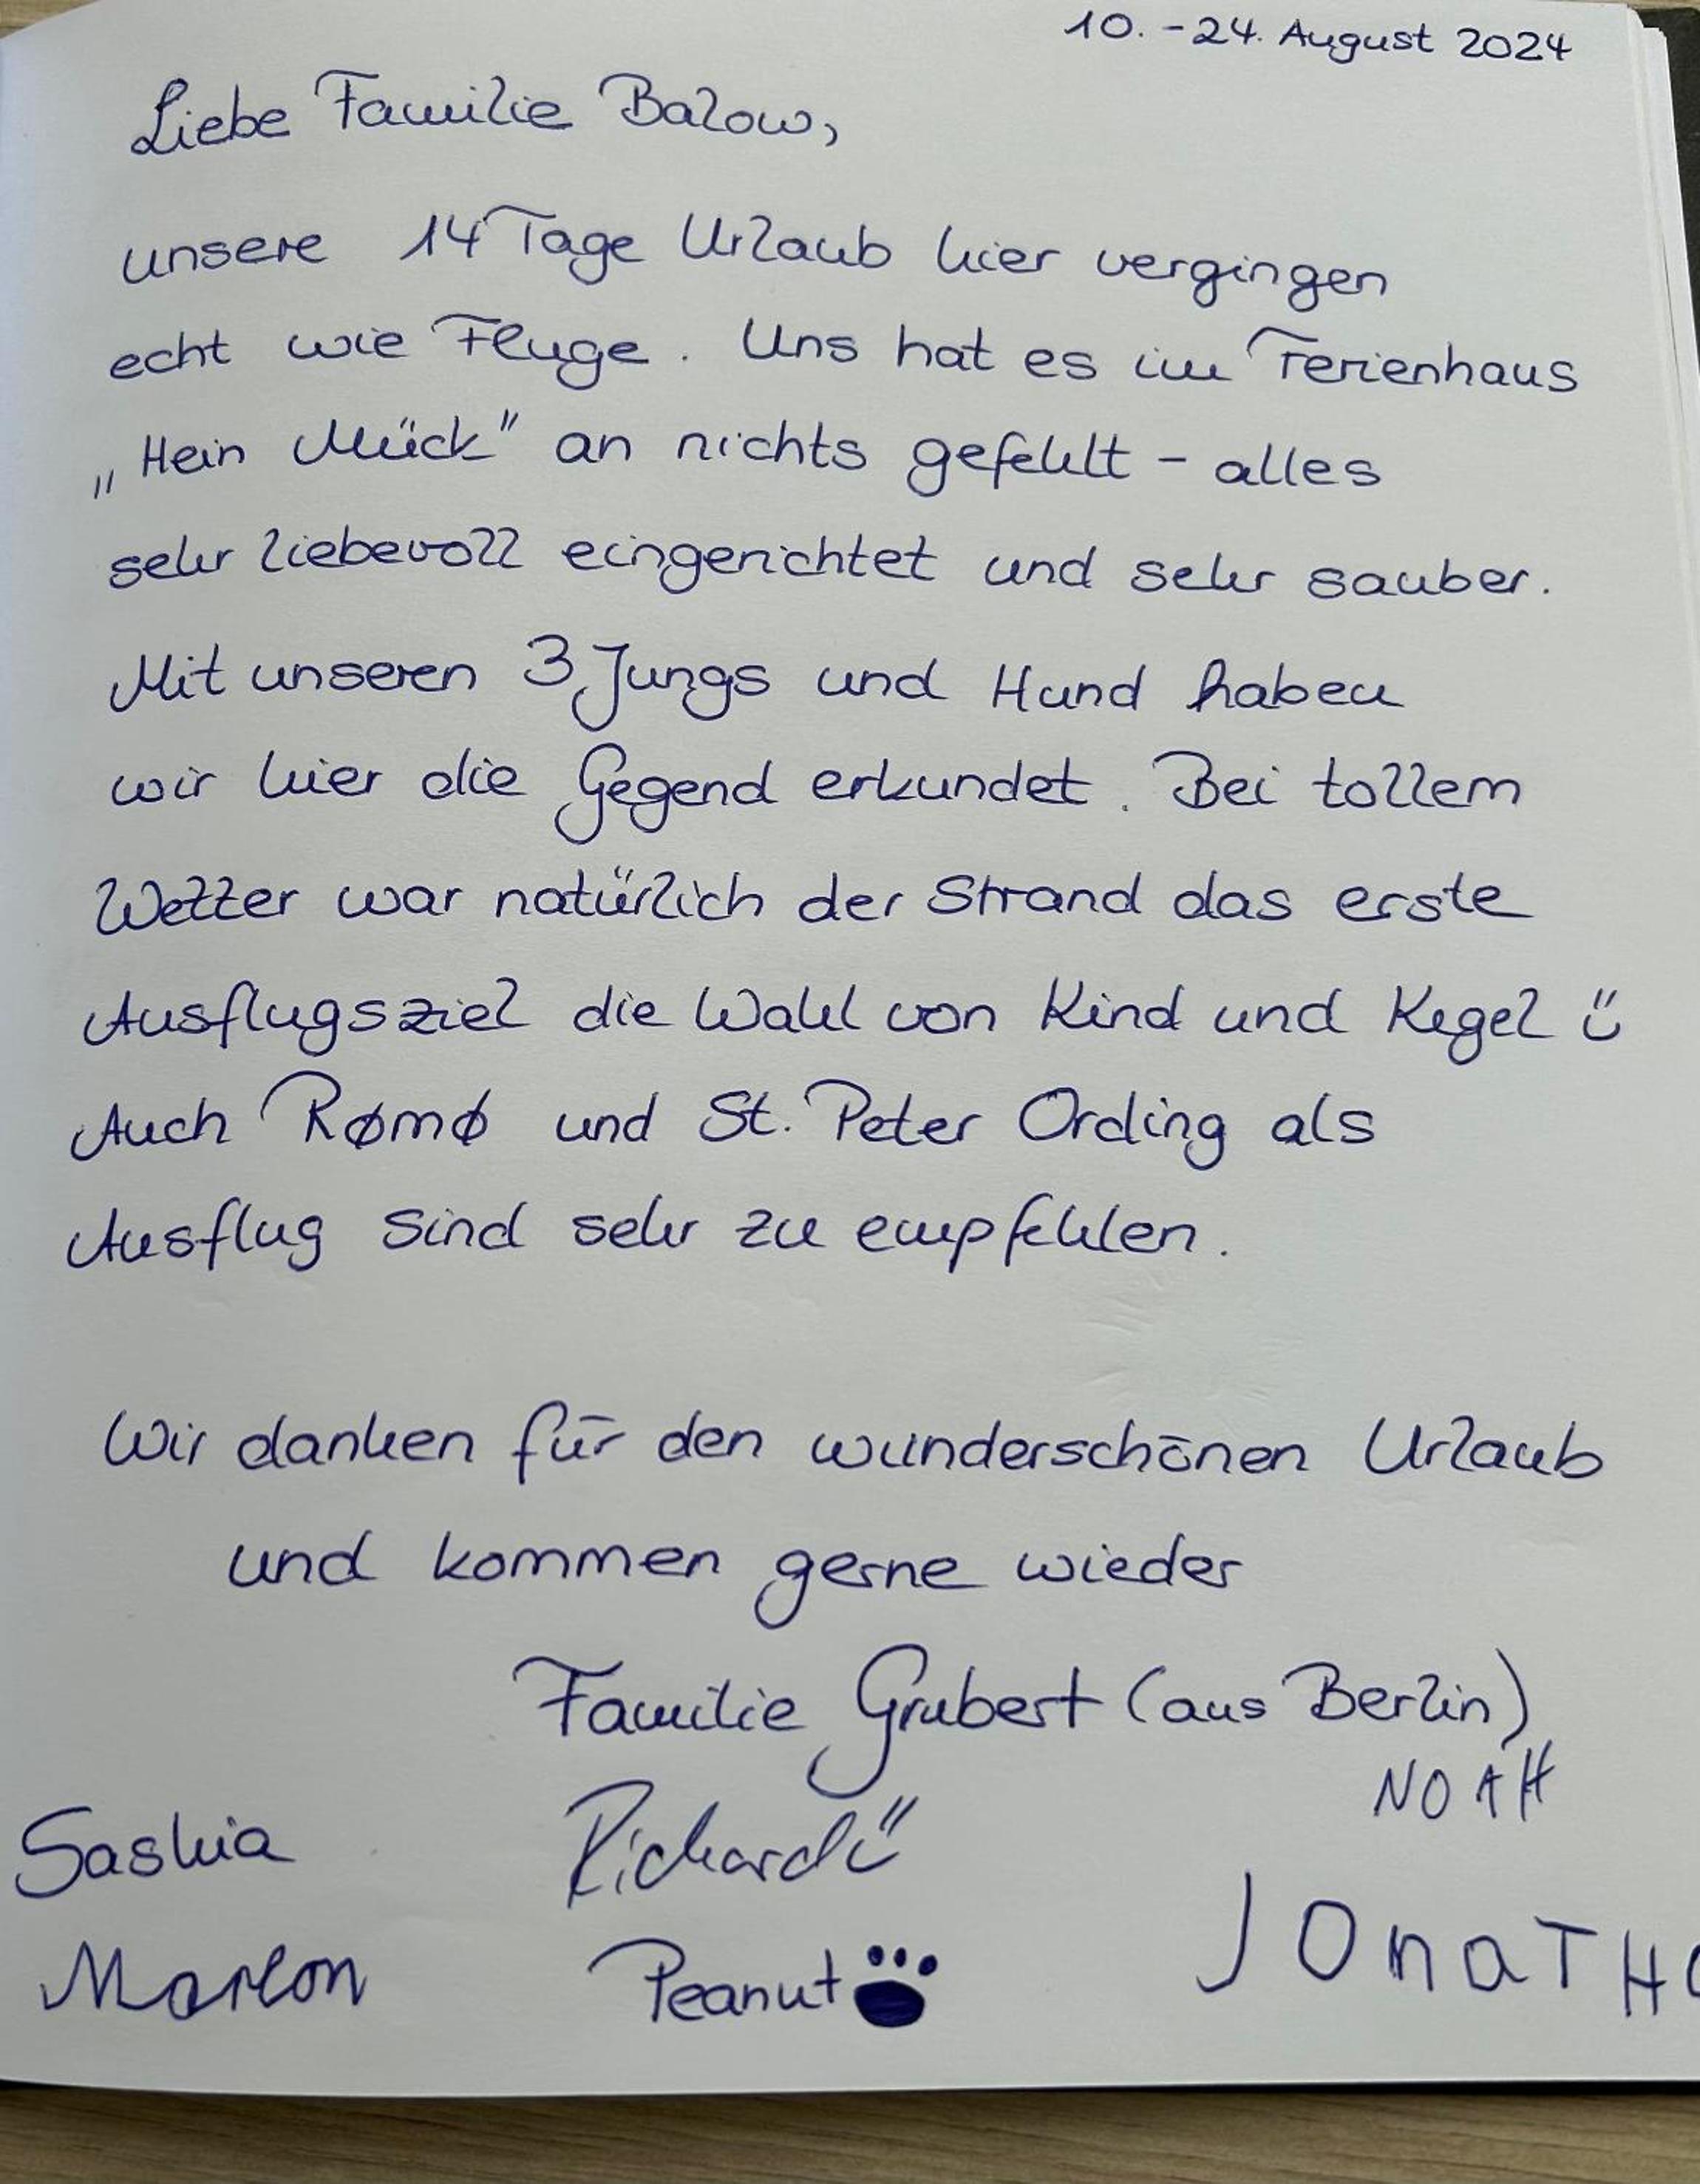 10. - 24. August 2024
Liebe Familie Balow,
unsere 14 Tage Urlaub hier vergingen
echt wie Fluge. Uns hat es im Ferienhaus
„Hein Mück" an nichts gefehlt - alles
sehr liebevoll eingerichtet und sehr sauber.
Mit unseren 3 Jungs und Hund haben
wir hier die Gegend erkundet. Bei tollem
Wetter war natürlich der Strand das erste
Ausflugsziel die Wahl von Kind und Kegel
Auch Rømø und St. Peter Ording als
Ausflug sind sehr zu empfehlen.
Wir danken für den wunderschönen Urlaub
und kommen gerne wieder
Familie Grubert (aus Berlin)
NOAH
Saskia Richard
Marlon Peanut JOnaTH